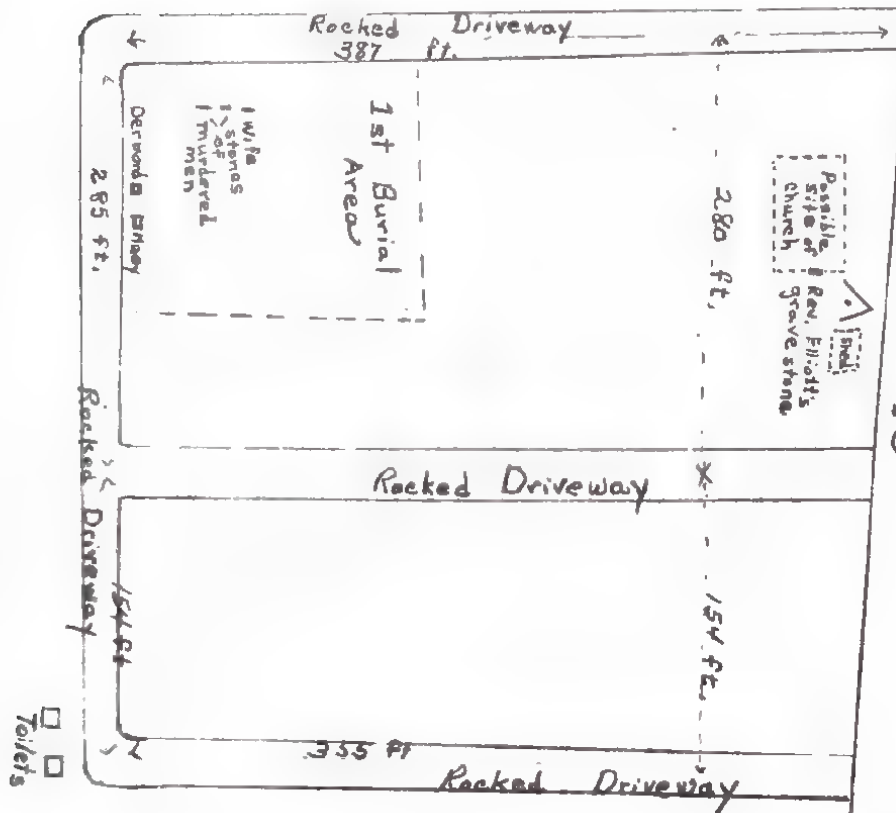 Rocked Driveway
387 ft.
1st Burial
Area
1 wife
1 > stones
of
1 murdered
men
285 ft.
280 ft.
Possible
Site of
Church
Rev. Elliott's
gravestone
Shed
Rocked Driveway
Rocked Driveway
154 ft
154 ft.
355 ft
Rocked Driveway
Toilets